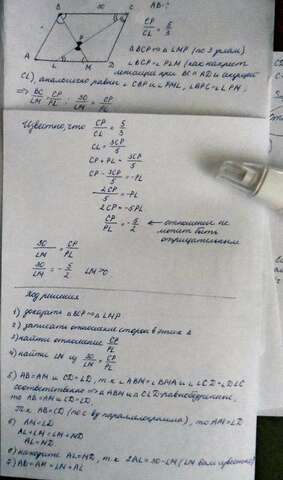 B 30 C AB-?
CP/CL = 5/3
P
△BCP ∾ △LMP (по 3 углам)
A L M D
∠BCP = ∠PLM (как накрест
лежащие при BC ∥ AD и секущей
CL), аналогично равны ∠CBP и ∠PML, ∠BPC = ∠LPM,
⇒ BC/LM = CP/PL ; 30/LM = CP/PL
Известно, что CP/CL = 5/3
CL = 3CP/5
CP + PL = 3CP/5
CP - 3CP/5 = -PL
2CP/5 = -PL
2CP = -5PL
CP/PL = -5/2 ← отношение не
может быть
отрицательным
30/LM = CP/PL
30/LM = -5/2 LM>0
Ход решения
1) доказать △BCP ∾ △LMP
2) записать отношение сторон в этих △
3) найти отношение CP/PL
4) найти LM из 30/LM = CP/PL
5) AB=AM и CD=LD, т.к ∠ABM=∠BMA и ∠LCD=∠DLC
соответственно ⇒ △ABM и △CLD равнобедренные,
то AB=AM и CD=LD.
Т.к. AB=CD (по св-ву параллелограмма), то AM=LD
6) AM=LD
AL+LM=LM+MD
AL=MD
6) находите AL=MD, т.к 2AL=30-LM (LM вам известно)
7) AB=AM=LM+AL